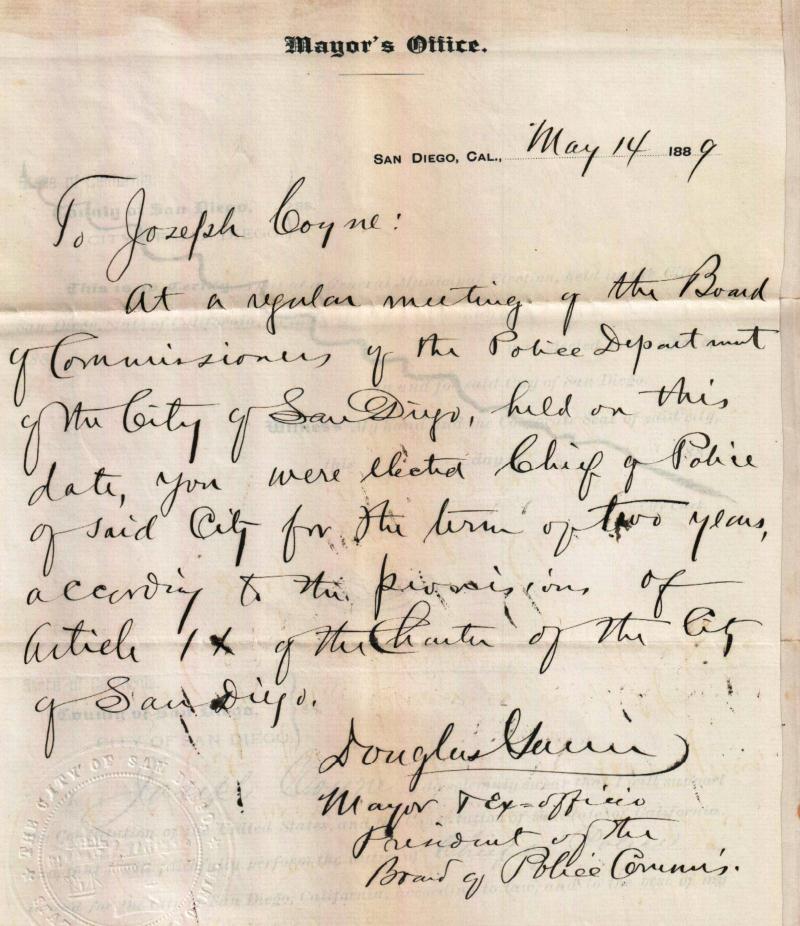 Mayor's Office.
SAN DIEGO, CAL., May 14 1889
To Joseph Coyne:
At a regular meeting of the Board
of Commissioners of the Police Department
of the City of San Diego, held on this
date, you were elected Chief of Police
of said City for the term of two years,
according to the provisions of
Article IX of the Charter of the City
of San Diego.
Douglas Gunn
Mayor & Ex-officio
President of the
Board of Police Commis.
THE CITY OF SAN DIEGO